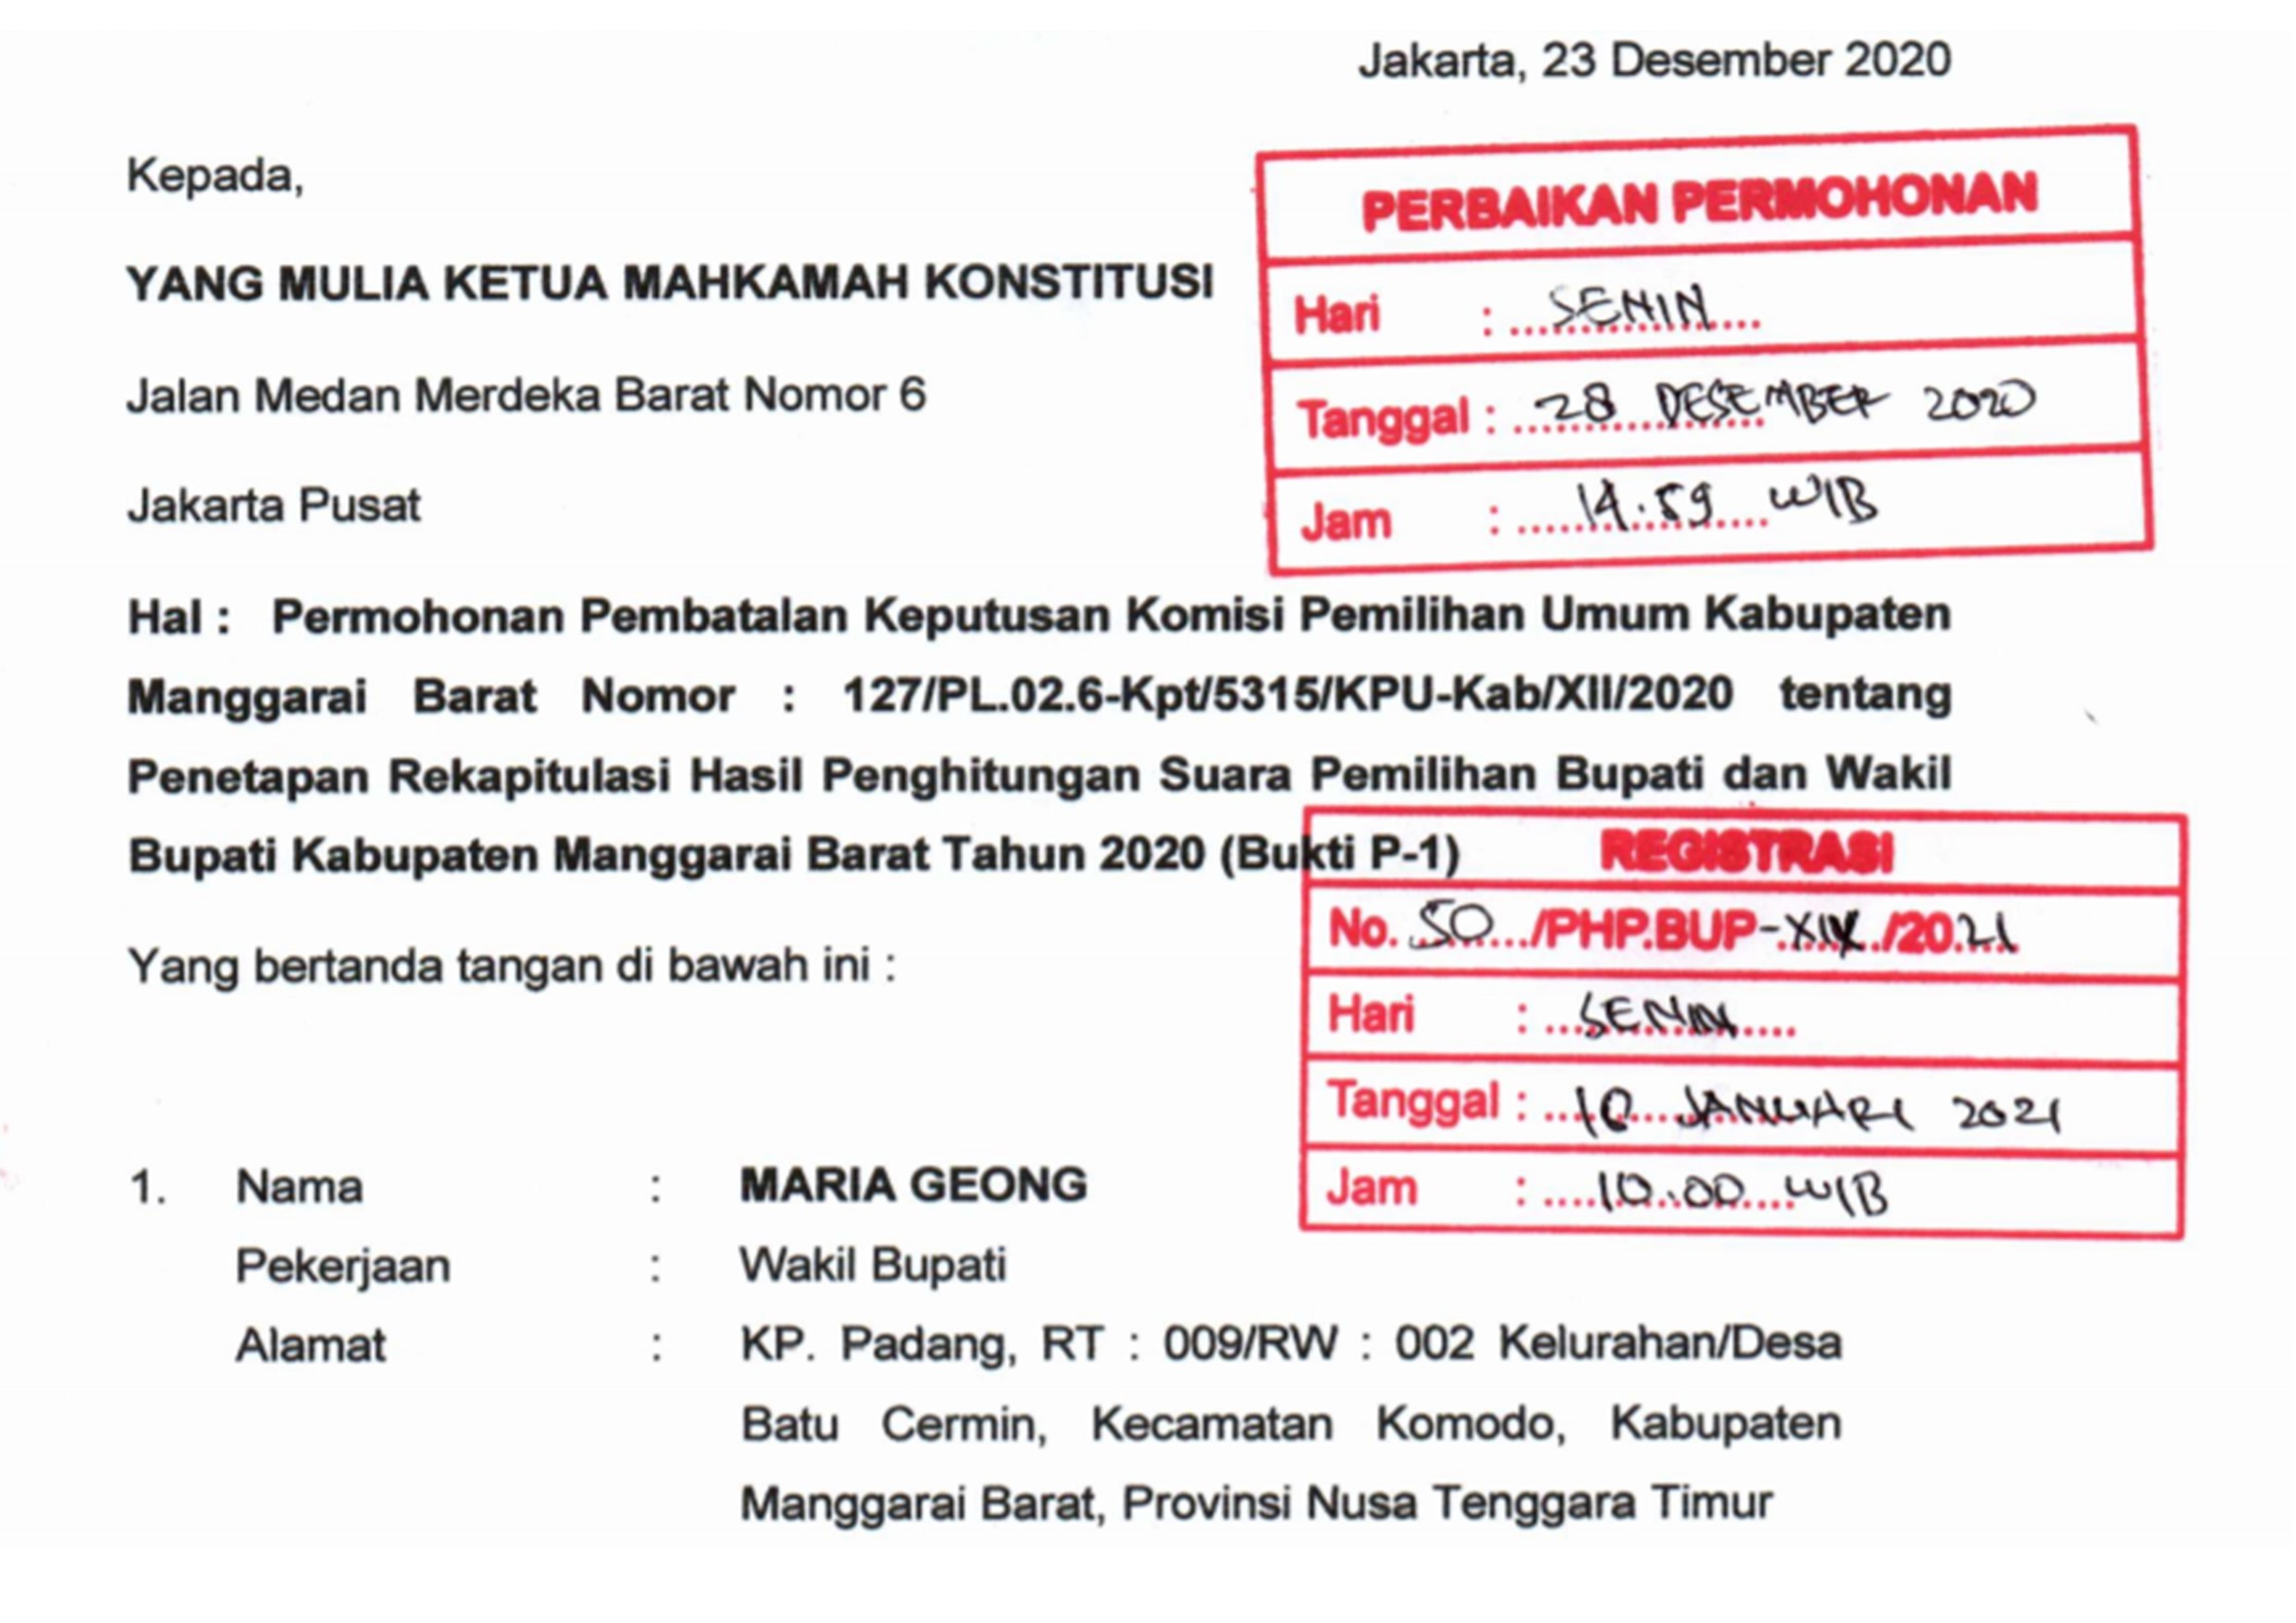 Jakarta, 23 Desember 2020
Kepada,
YANG MULIA KETUA MAHKAMAH KONSTITUSI
Jalan Medan Merdeka Barat Nomor 6
Jakarta Pusat
PERBAIKAN PERMOHONAN
Hari : SENIN
Tanggal : 28 DESEMBER 2020
Jam : 14.59 WIB
Hal : Permohonan Pembatalan Keputusan Komisi Pemilihan Umum Kabupaten
Manggarai Barat Nomor : 127/PL.02.6-Kpt/5315/KPU-Kab/XII/2020 tentang
Penetapan Rekapitulasi Hasil Penghitungan Suara Pemilihan Bupati dan Wakil
Bupati Kabupaten Manggarai Barat Tahun 2020 (Bukti P-1)
REGISTRASI
No. 50 /PHP.BUP-XIX/2021
Hari : SENIN
Tanggal : 18 JANUARI 2021
Jam : 10.00 WIB
Yang bertanda tangan di bawah ini :
1. Nama : MARIA GEONG
Pekerjaan : Wakil Bupati
Alamat : KP. Padang, RT : 009/RW : 002 Kelurahan/Desa
Batu Cermin, Kecamatan Komodo, Kabupaten
Manggarai Barat, Provinsi Nusa Tenggara Timur